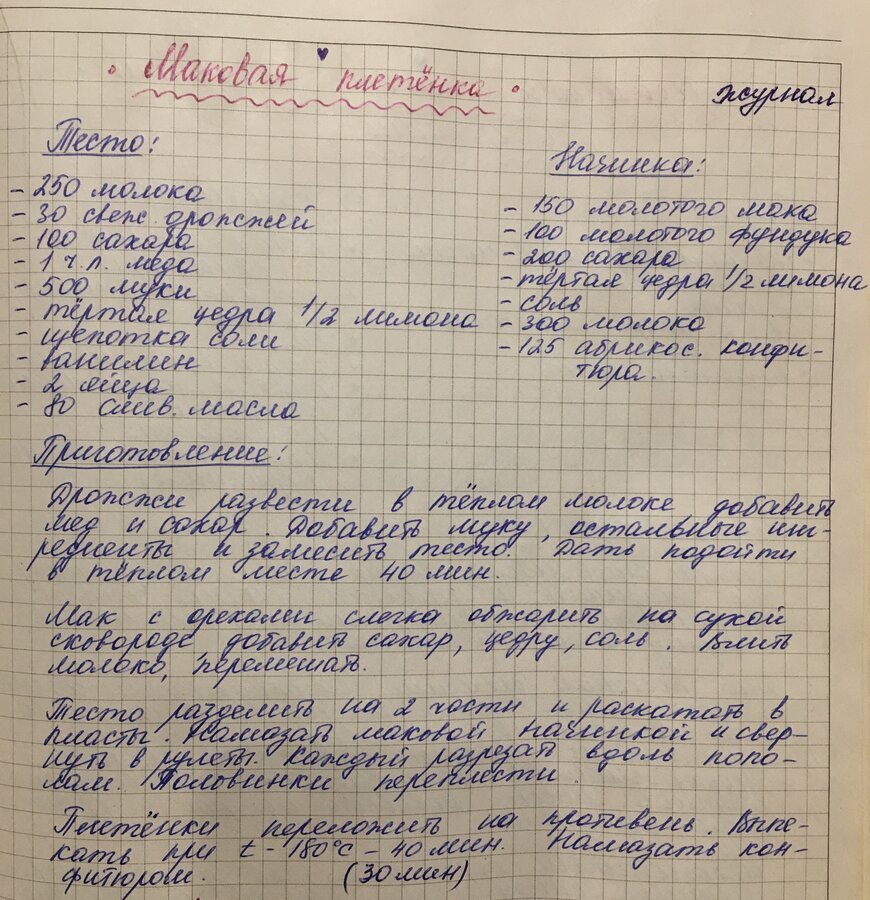 Маковая плетёнка
журнал
Тесто:
- 250 молока
- 30 свеж. дрожжей
- 100 сахара
- 1 ч.л. меда
- 500 муки
- тёртая цедра 1/2 лимона
- щепотка соли
- ванилин
- 2 яйца
- 80 слив. масла
Начинка:
- 150 молотого мака
- 100 молотого фундука
- 200 сахара
- тёртая цедра 1/2 лимона
- соль
- 300 молока
- 125 абрикос. конфи-
тюра.
Приготовление:
Дрожжи развести в тёплом молоке добавить
мед и сахар. Добавить муку, остальные инг-
редиенты и замесить тесто. Дать подойти
в тёплом месте 40 мин.
Мак с орехами слегка обжарить на сухой
сковороде добавить сахар, цедру, соль. Влить
молоко, перемешать.
Тесто разделить на 2 части и раскатать в
пласты. Намазать маковой начинкой и свер-
нуть в рулеты. Каждый разрезать вдоль попо-
лам. Половинки переплести.
Плетёнки переложить на противень. Выпе-
кать при t - 180°С - 40 мин. Намазать кон-
фитюром. (30 мин)